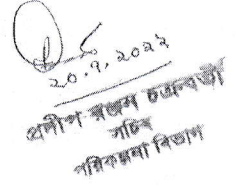 ২০.৭.২০২২
প্রদীপ রঞ্জন চক্রবর্তী
সচিব
পরিকল্পনা বিভাগ